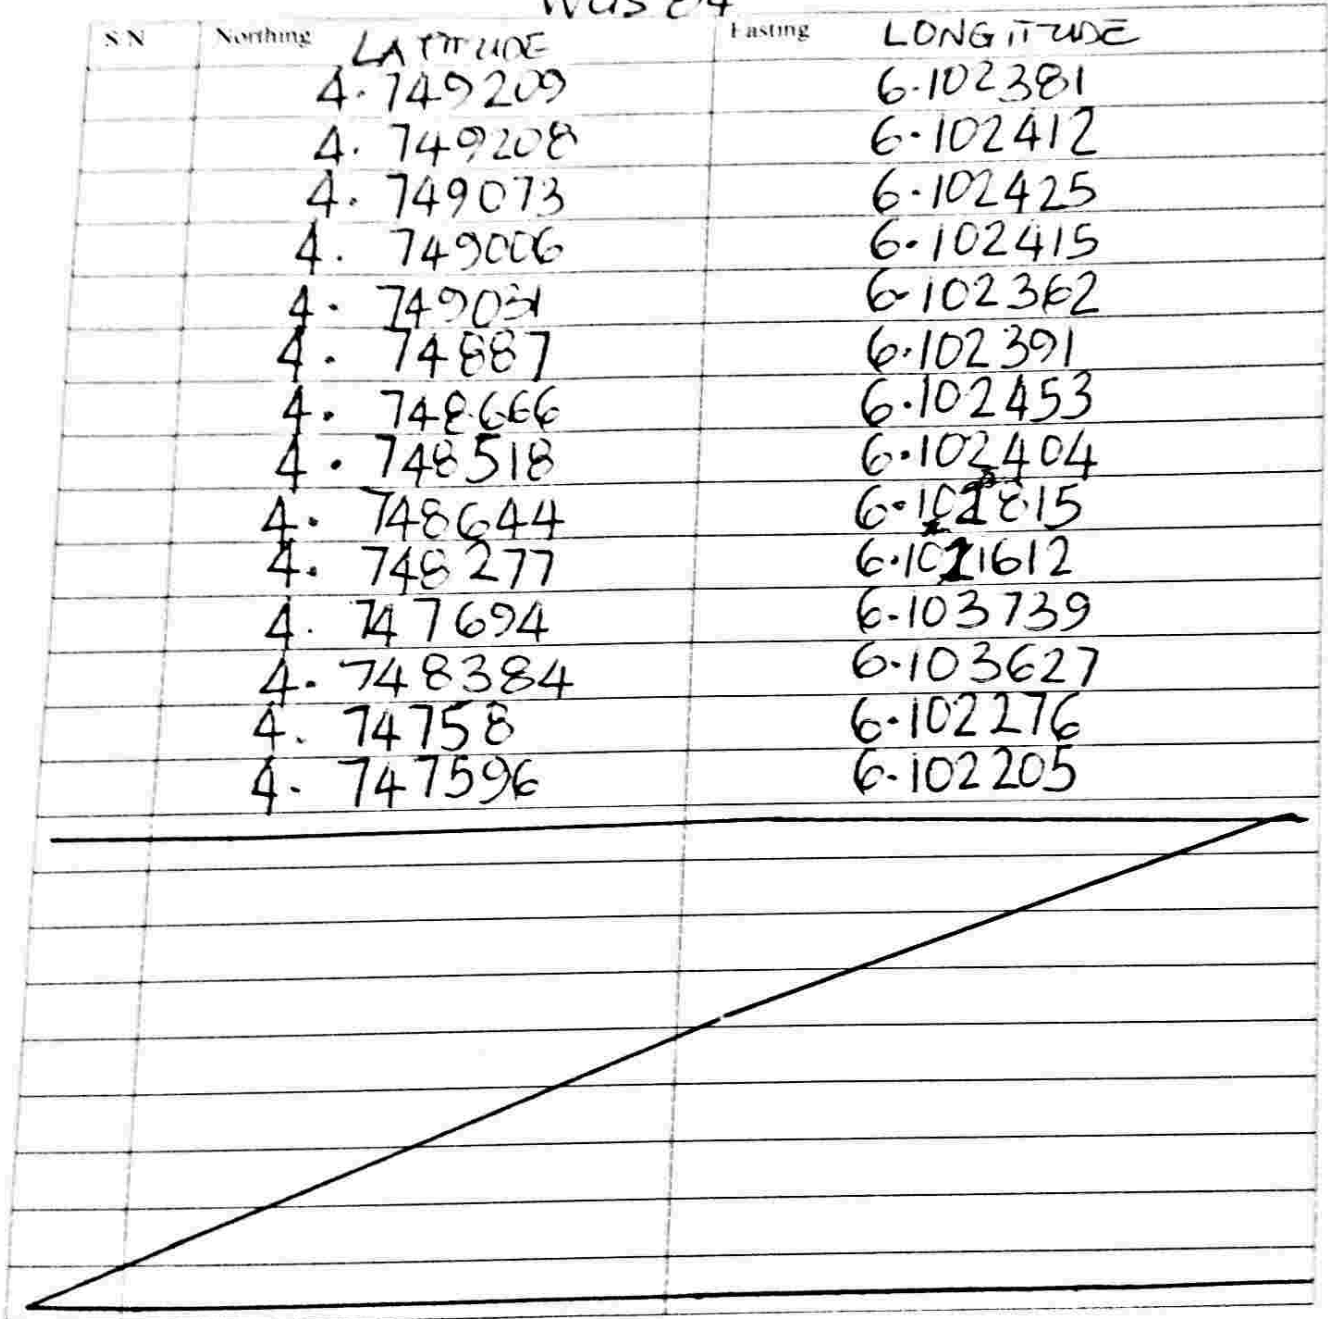 WGS 84
S/N Northing LATITUDE Easting LONGITUDE
4.749209 6.102381
4.749208 6.102412
4.749073 6.102425
4.749006 6.102415
4.749031 6.102362
4.74887 6.102391
4.748666 6.102453
4.748518 6.102404
4.748644
4.748277
4.747694 6.103739
4.748384 6.103627
4.74758 6.102276
4.747596 6.102205